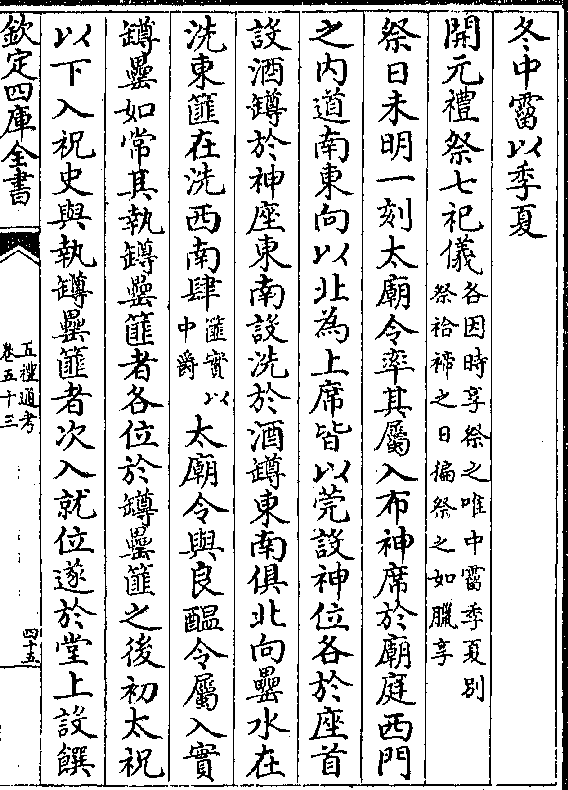 冬中霤以季夏
開元禮祭七祀儀各因時享祭之唯中霤季夏別
祭祫禘之日徧祭之如臘享
祭日未明一刻太廟令率其屬入布神席於廟庭西門
之内道南東向以北為上席皆以莞設神位各於座首
設酒罇於神座東南設洗於酒罇東南俱北向罍水在
洗東篚在洗西南肆篚實以
中爵太廟令與良醖令屬入實
罇罍如常其執罇罍篚者各位於罇罍篚之後初太祝
以下入祝史與執罇罍篚者次入就位遂於堂上設饌
欽定四庫全書
五禮通考
卷五十三
四十五